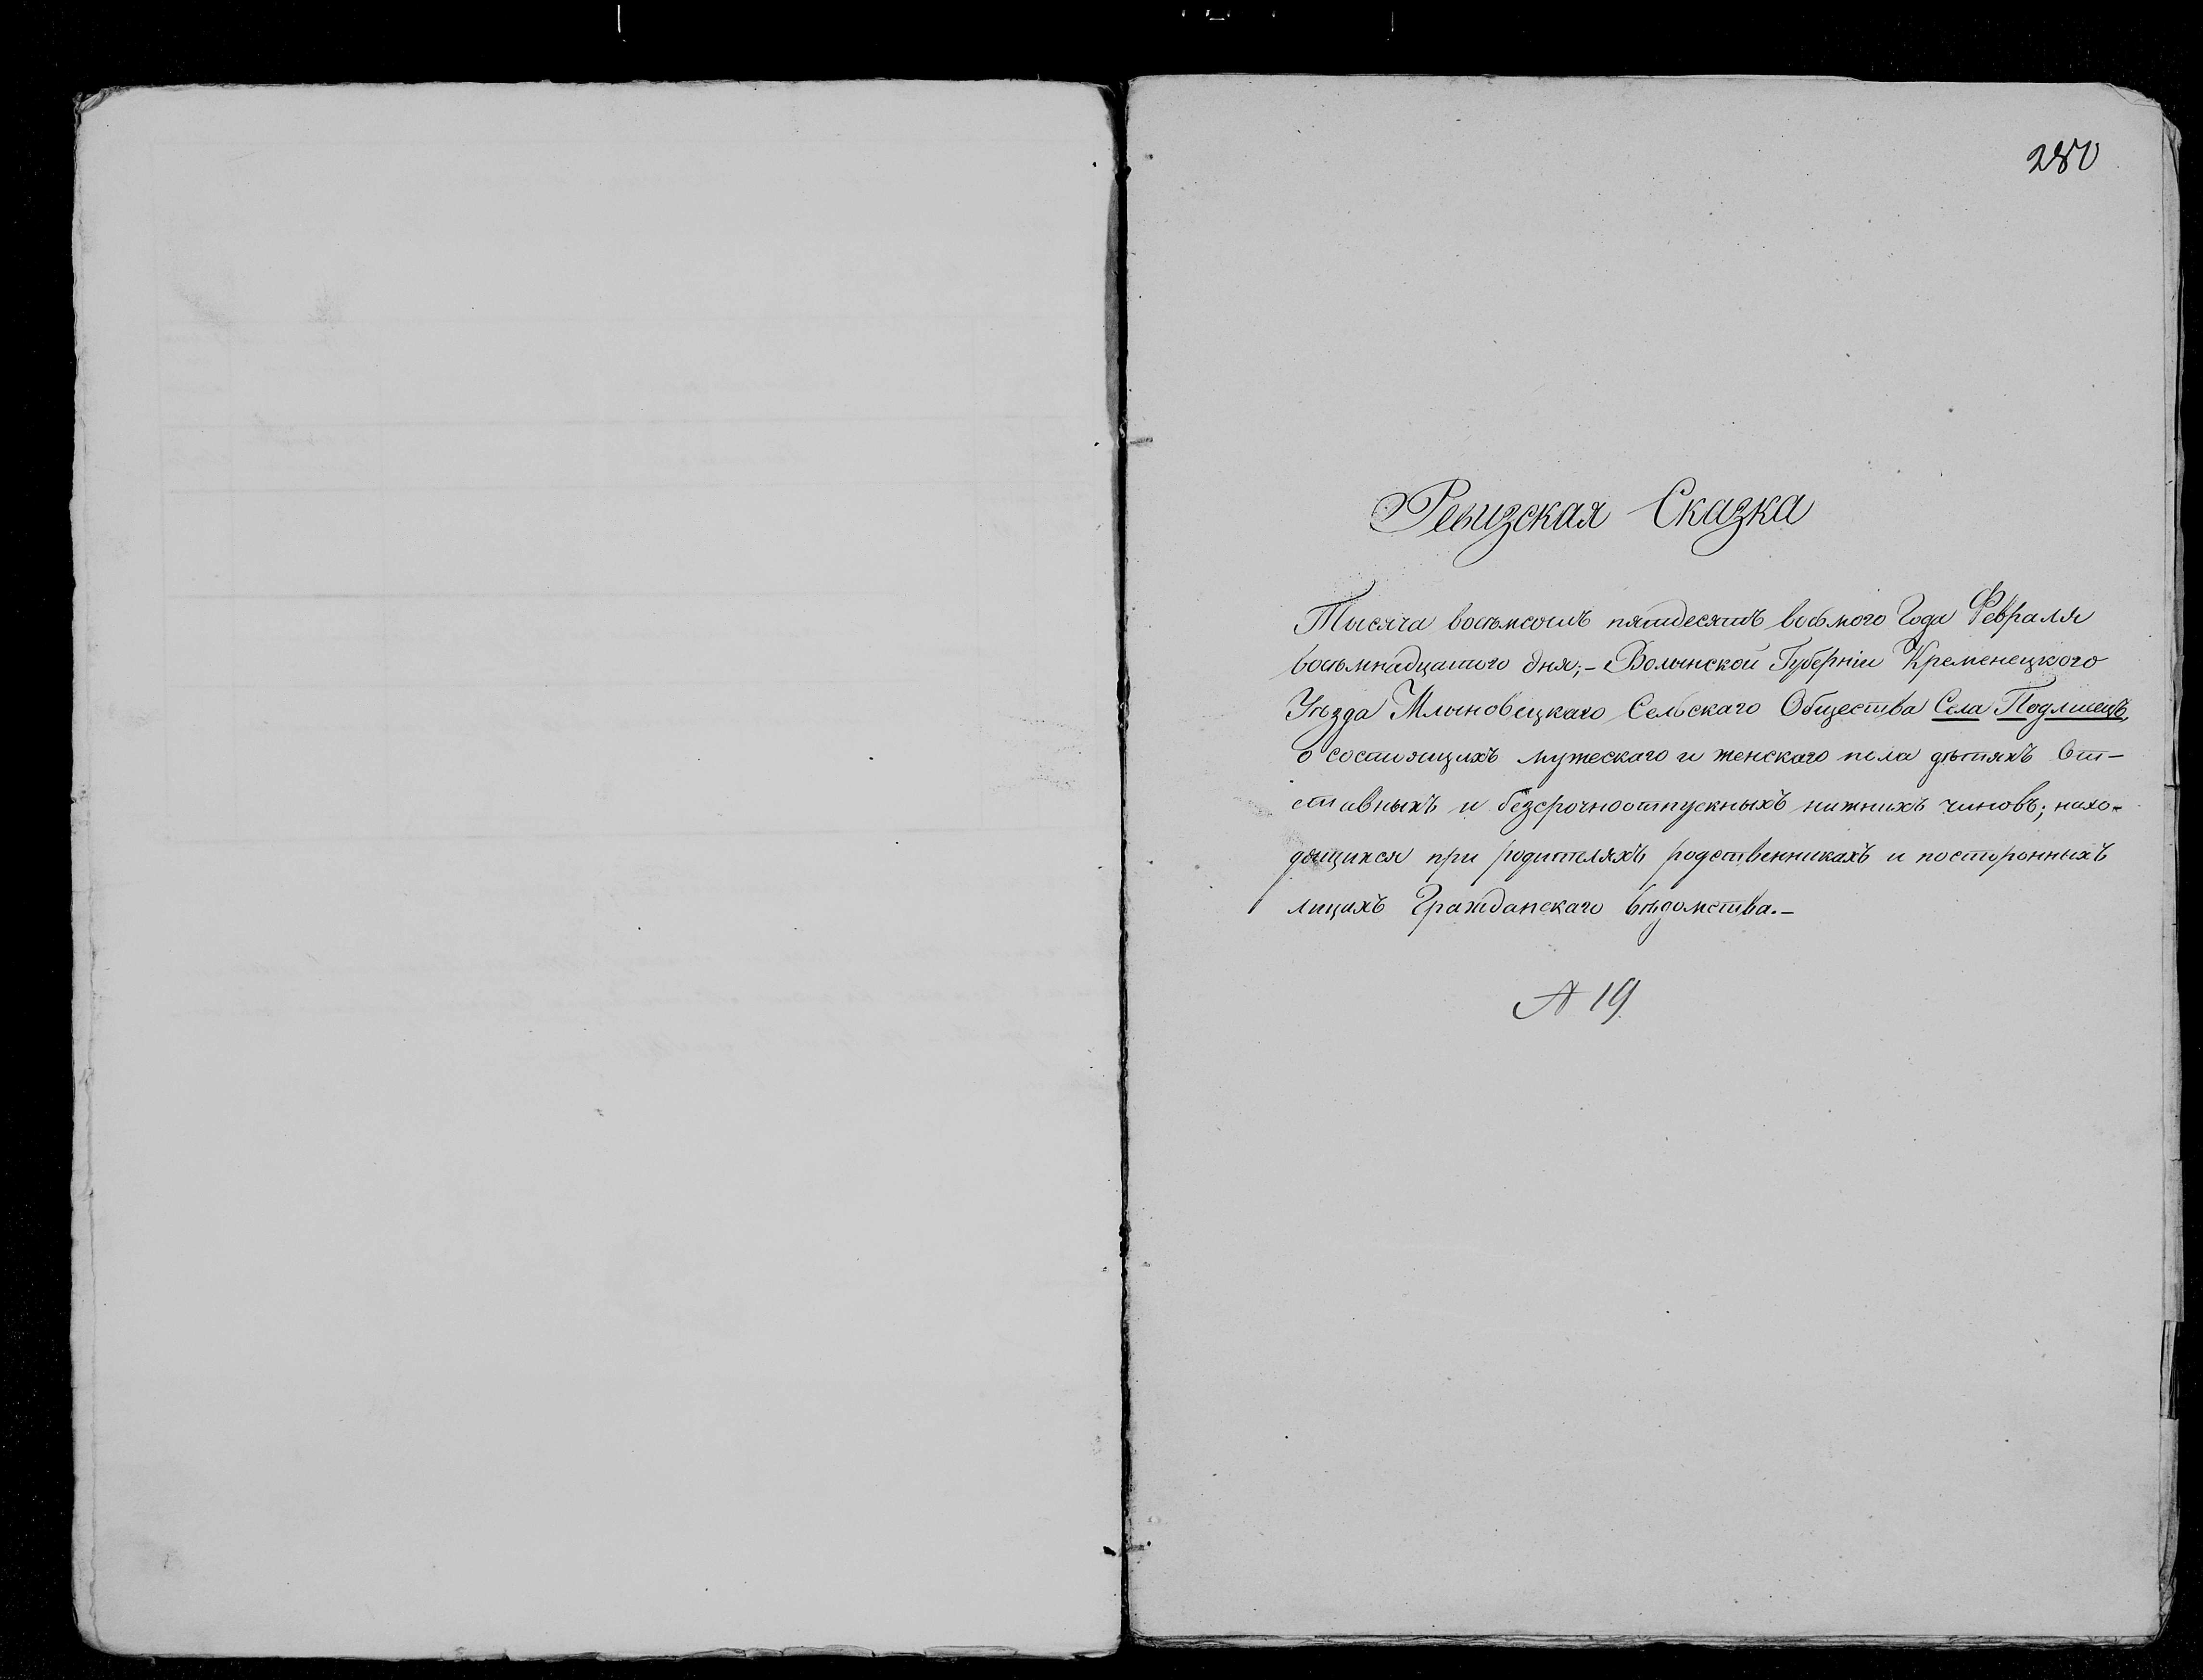 280
Ревизская Сказка
Тысяча восьмсотъ пятдесятъ восьмого Года Февраля
восьмнадцатого дня;- Волынской Губерніи Кременецкого
Уѣзда Млыновецкаго Сельскаго Общества Села Подлисецъ,
о состоящихъ мужескаго и женскаго пола дѣтяхъ От-
ставныхъ и безсрочноотпускныхъ нижнихъ чиновъ; нахо-
дящихся при родителяхъ родственникахъ и посторонныхъ
лицахъ Гражданскаго вѣдомства.-
№ 19